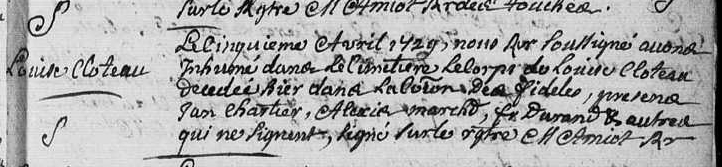 Sur le Rgtre M Amiot Rr des touches.
S
Le Cinquieme Avril 1729, nous Rr Soussigné avons
Louise Cloteau
Inhumé dans Le Cimetiere Le Corps de Louise Cloteau
Decedée hier dans La Coion des fideles, presens
Jan Chartier, Alexis marchd, fr Durand & autres
S
qui ne signent, signé Sur le rgtre M Amiot Rr